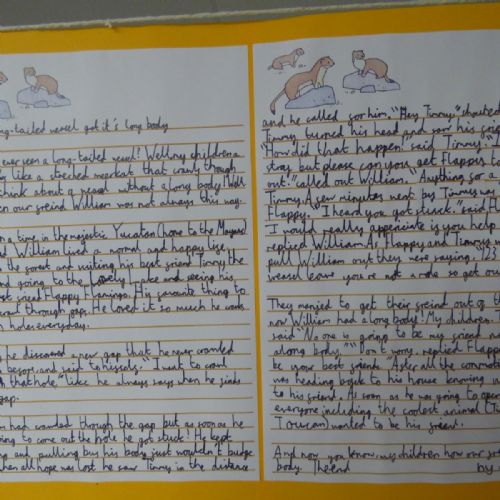 ng-tailed weasel got it's long body
ever seen a long-tailed weasel? Well my children a
like a streched meerkat that crawls through
think about a weasel without a long body! Well
our freind William was not always this way.
n a time in the majestic Yucatan (home to the Mayans)
William lived a normal and happy life
the forest and visiting his best friend Timmy the
nd going to the lovely lake and seeing his
freind Flappy Flamingo. His favourite thing to
crawl through gaps. He loved it so much he would
holes everyday.
he discovered a new gap that he never crawled
before and said to hisself, "I want to crawl
that hole" like he always says when he finds
gap.
had crawled through the gap but as soon as he
oing to come out the hole he got stuck! He kept
and pulling but his body just wouldn't budge
hen all hope was lost he saw Timmy in the distance
and he called for him. "Hey Timmy" shouted
Timmy turned his head and saw his
"How did that happen" said Timmy.
story but please can you get Flappy to
out" called out William. "Anything for a
Timmy. A few minutes went by Timmy
Flappy. "I heard you got stuck" said
I would really appreciate is you help
replied William. As Flappy and Timmy
pull William out they were saying, "123
weasel leave you're not a mole so get out
They manjed to get their freind out of
now William had a long body! My children
said "No one is going to be my freind
a long body." "Don't worry, replied
be your best friends." After all the commot
was heading back to his house knowing
to his friend. As soon as he was going to open
everyone including the coolest animal
Toucan) wanted to be his freind.
And now you know, my children how our
body. The end by